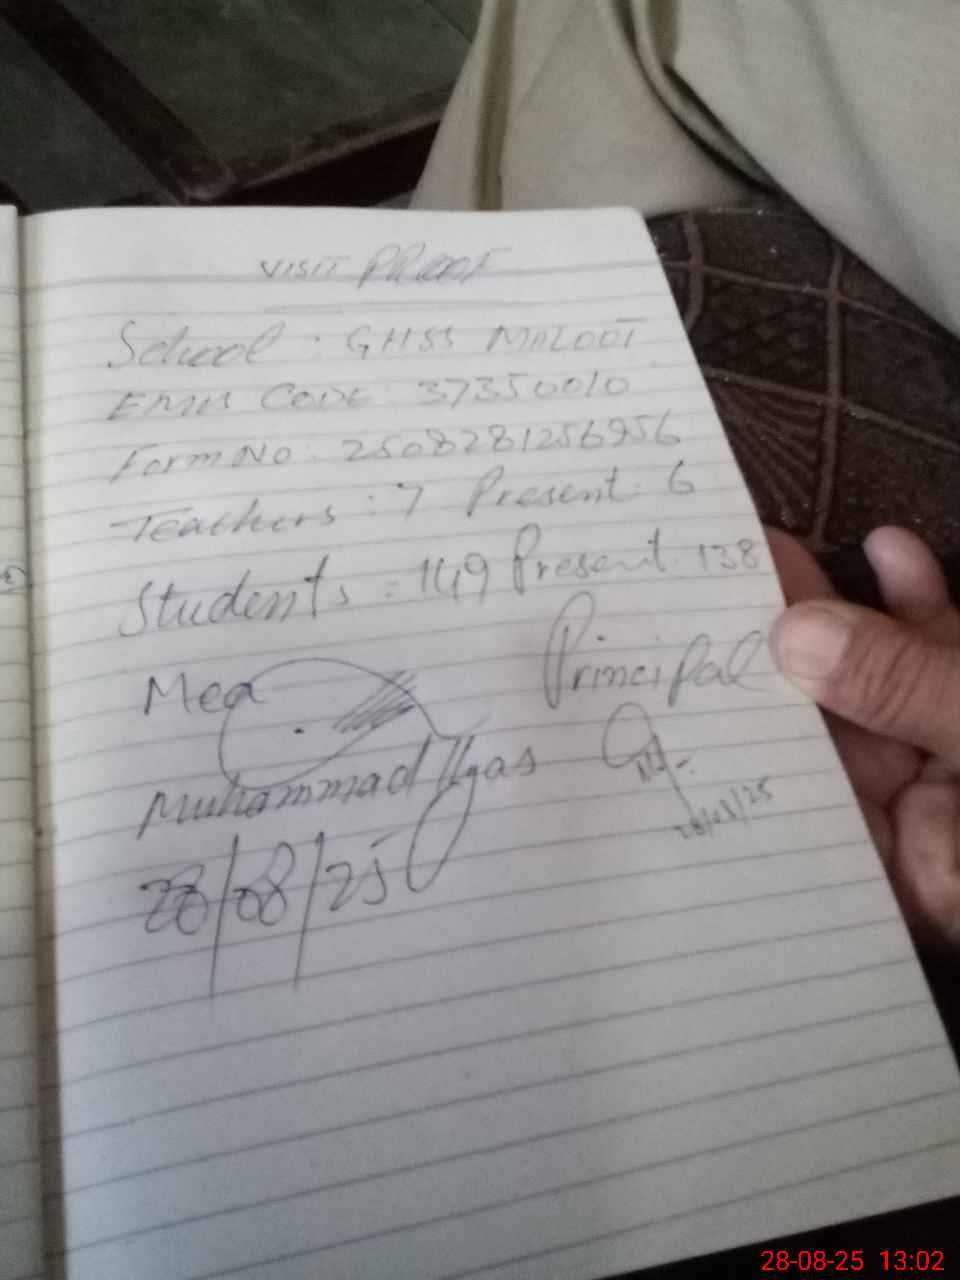 VISIT PROOF
School : GHSS MALOOT
EMIS CODE : 37350010
Form No : 2508281256956
Teachers : 7 Present : 6
Students : 149 Present : 138
Mea
Principal
Muhammad Ilyas
28/08/25
28/08/25
28-08-25 13:02